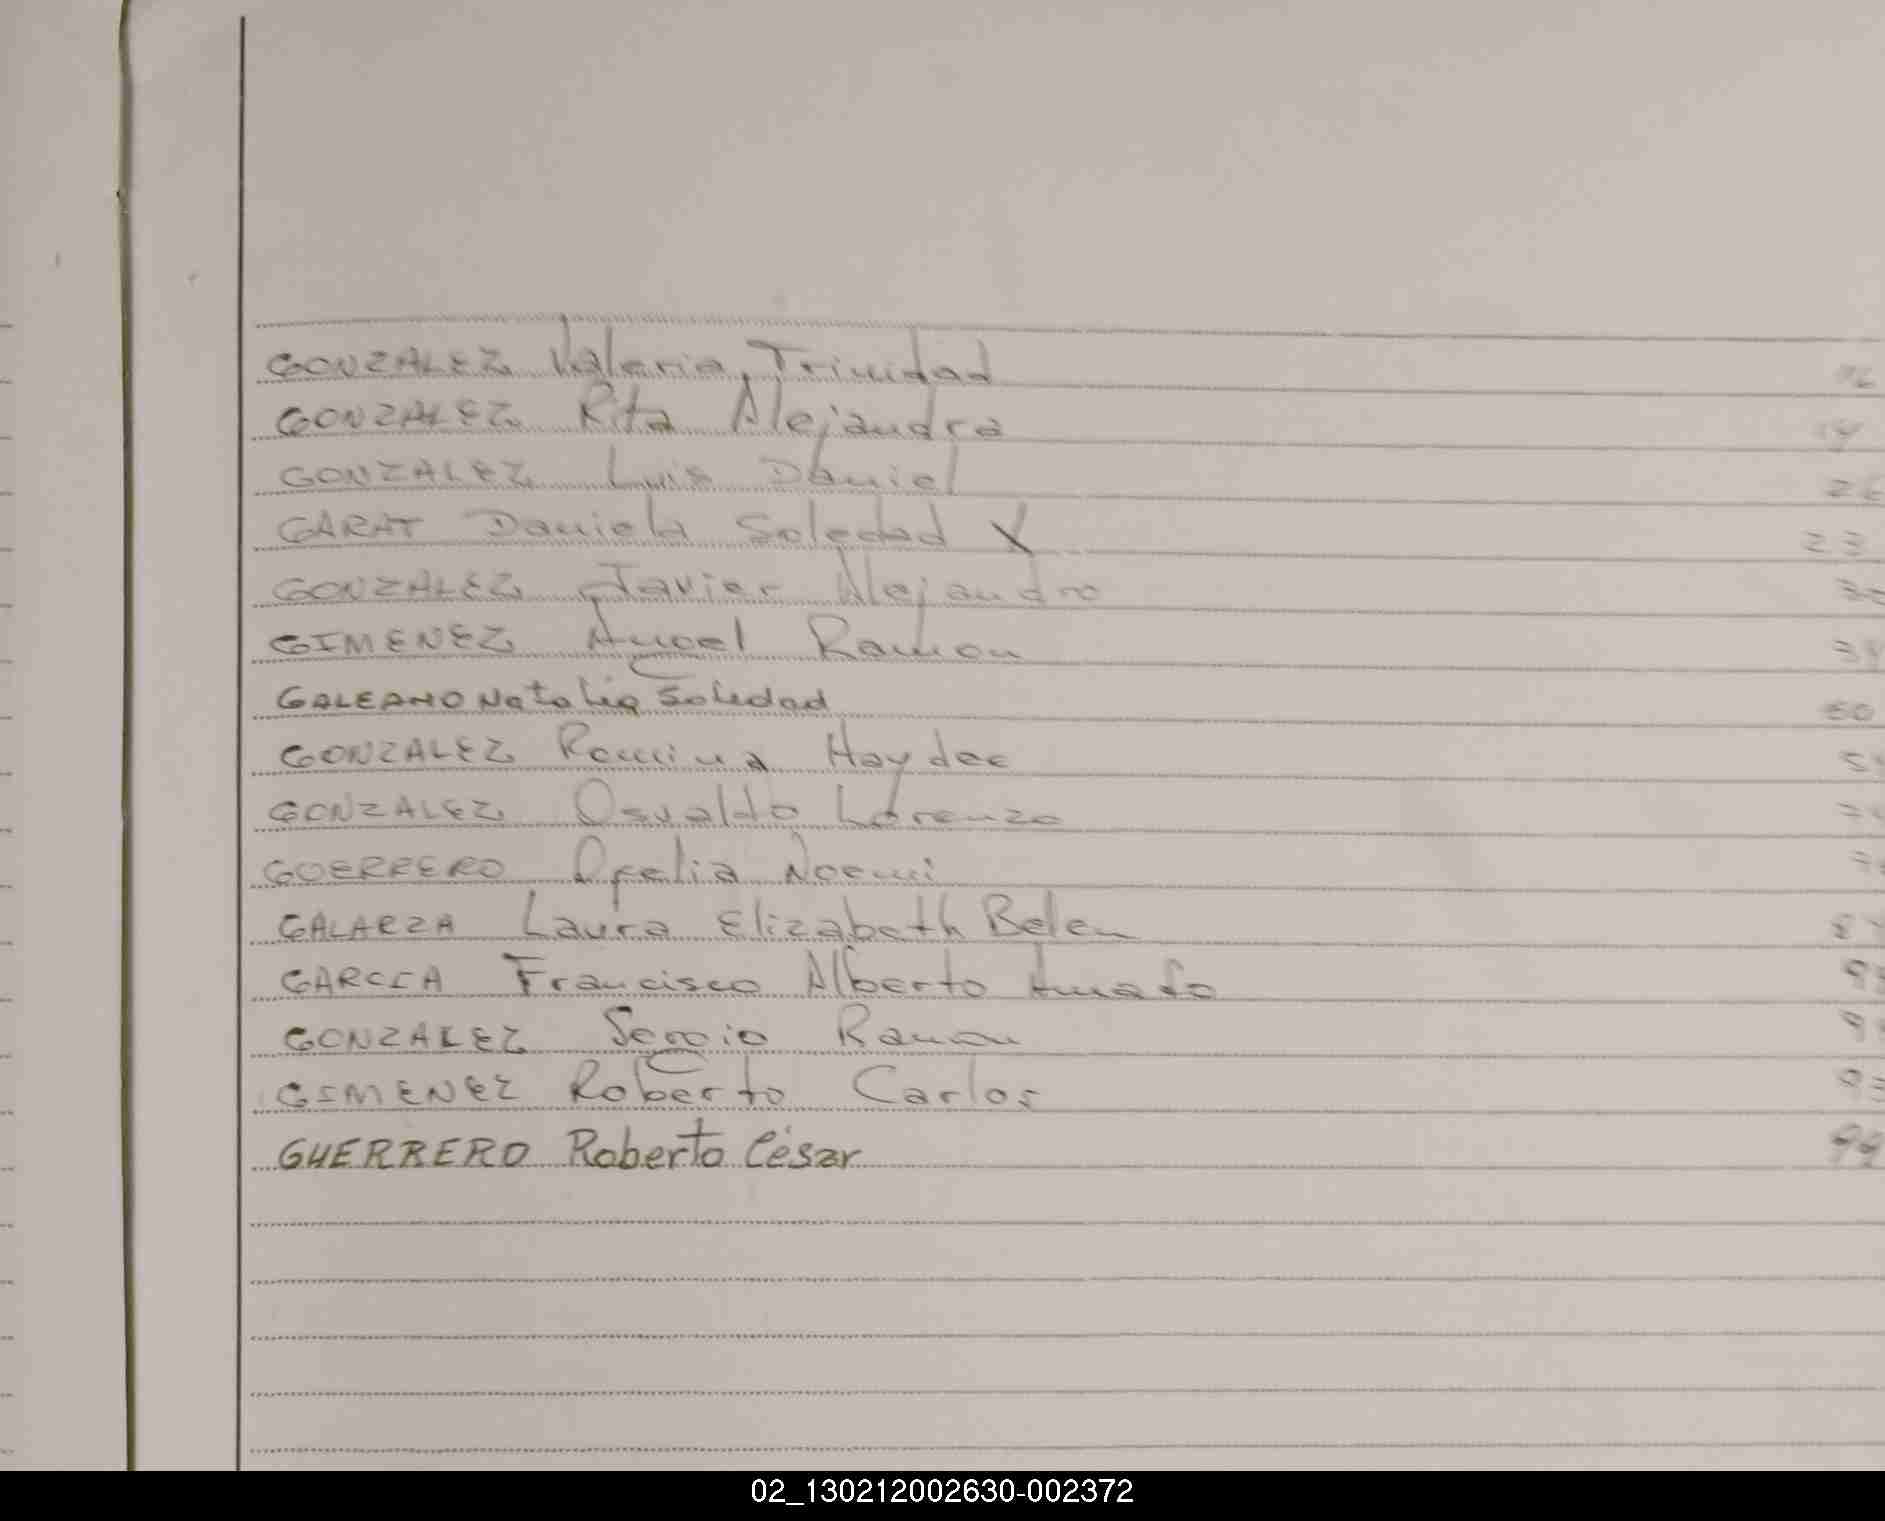 GONZALEZ Valeria Trinidad 16
GONZALEZ Rita Alejandra 19
GONZALEZ Luis Daniel
GARAT Daniela Soledad X 23
GONZALEZ Javier Alejandro
GIMENEZ Angel Ramon
GALEANO Natalia Soledad 50
GONZALEZ Romina Haydee
GONZALEZ Osvaldo Lorenzo
GUERRERO Ofelia Noemi
GALARZA Laura Elizabeth Belen
GARCIA Francisco Alberto
GONZALEZ Sergio Ramon
GIMENEZ Roberto Carlos
GUERRERO Roberto César 99
02_130212002630-002372